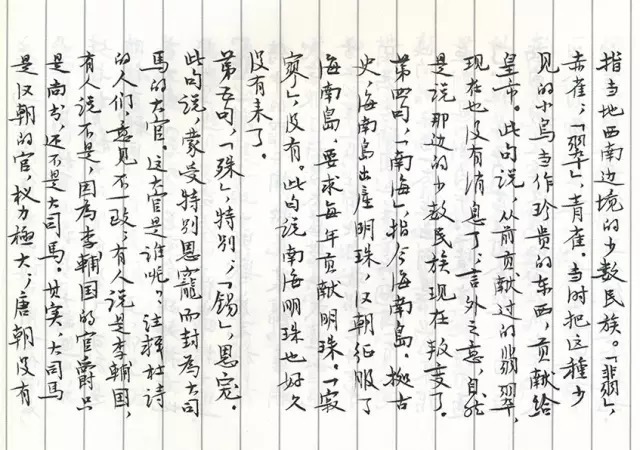 指当地西南边境的少数民族。「翡」,
赤雀;「翠」,青雀。当时把这種少
见的小鸟当作珍贵的东西,贡献给
皇帝。此句说,从前贡献过的翡翠,
现在也没有消息了;言外之意,自然
是说那边的少数民族现在叛变了。
第四句,「南海」,指今海南島。拠古
史,海南島出産明珠,汉朝征服了
海南島,要求每年贡献明珠。「寂
寥」,没有。此句说南海明珠也好久
没有来了。
第五句,「殊」,特别;「锡」,恩宠。
此句说,蒙受特别恩寵而封為大司
馬的大官。这大官是谁呢?注释杜诗
的人们,意见不一致;有人说是李輔国,
有人说不是,因為李輔国的官爵只
是尚书,还不是大司馬。其实,大司馬
是汉朝的官,权力極大;唐朝没有